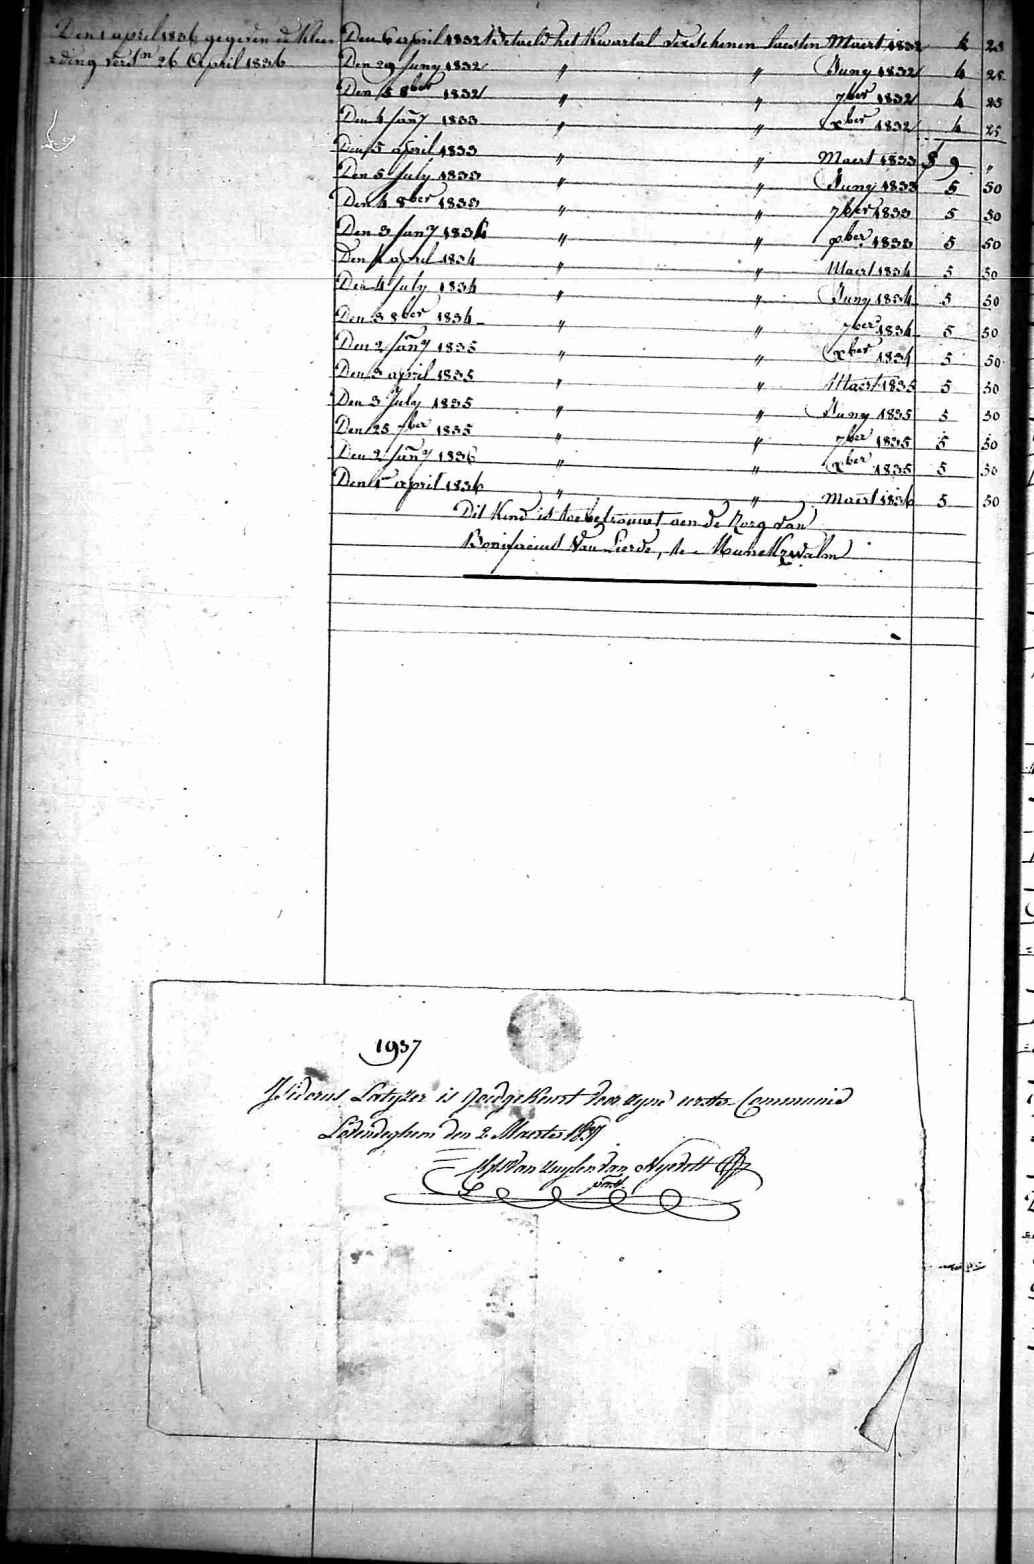 Den 1 april 1836 gegeven de klee-
ding versn 26 April 1836
Den 6 april 1832 Betaeld het kwartal verschenen laesten Maert 1832 4 25
Den 29 Juny 1832 " " Juny 1832 4 25
Den 5 8ber 1832 " " 7ber 1832 4 25
Den 4 Jany 1833 " " xber 1832 4 25
Den 5 april 1833 " " Maert 1833 9 "
Den 5 July 1833 " " Juny 1833 5 50
Den 4 8ber 1833 " " 7ber 1833 5 50
Den 3 Jany 1834 " " xber 1833 5 50
Den 4 april 1834 " " Maert 1834 5 50
Den 4 July 1834 " " Juny 1834 5 50
Den 3 8ber 1834 " " 7ber 1834 5 50
Den 2 Jany 1835 " " xber 1834 5 50
Den 3 april 1835 " " Maert 1835 5 50
Den 3 July 1835 " " Juny 1835 5 50
Den 25 7ber 1835 " " 7ber 1835 5 50
Den 2 Jany 1836 " " xber 1835 5 50
Den 1 april 1836 " " Maert 1836 5 50
Dit kind is toebetrouwt aen de zorg van
Bonifacius Van Lierde, te Munckzwalm
1937
Isidorus is goedgekeurt voor zyne eerste Communie
Lovendeghem den 2 Maerte 1837
Van Zuylen Van Nyevelt